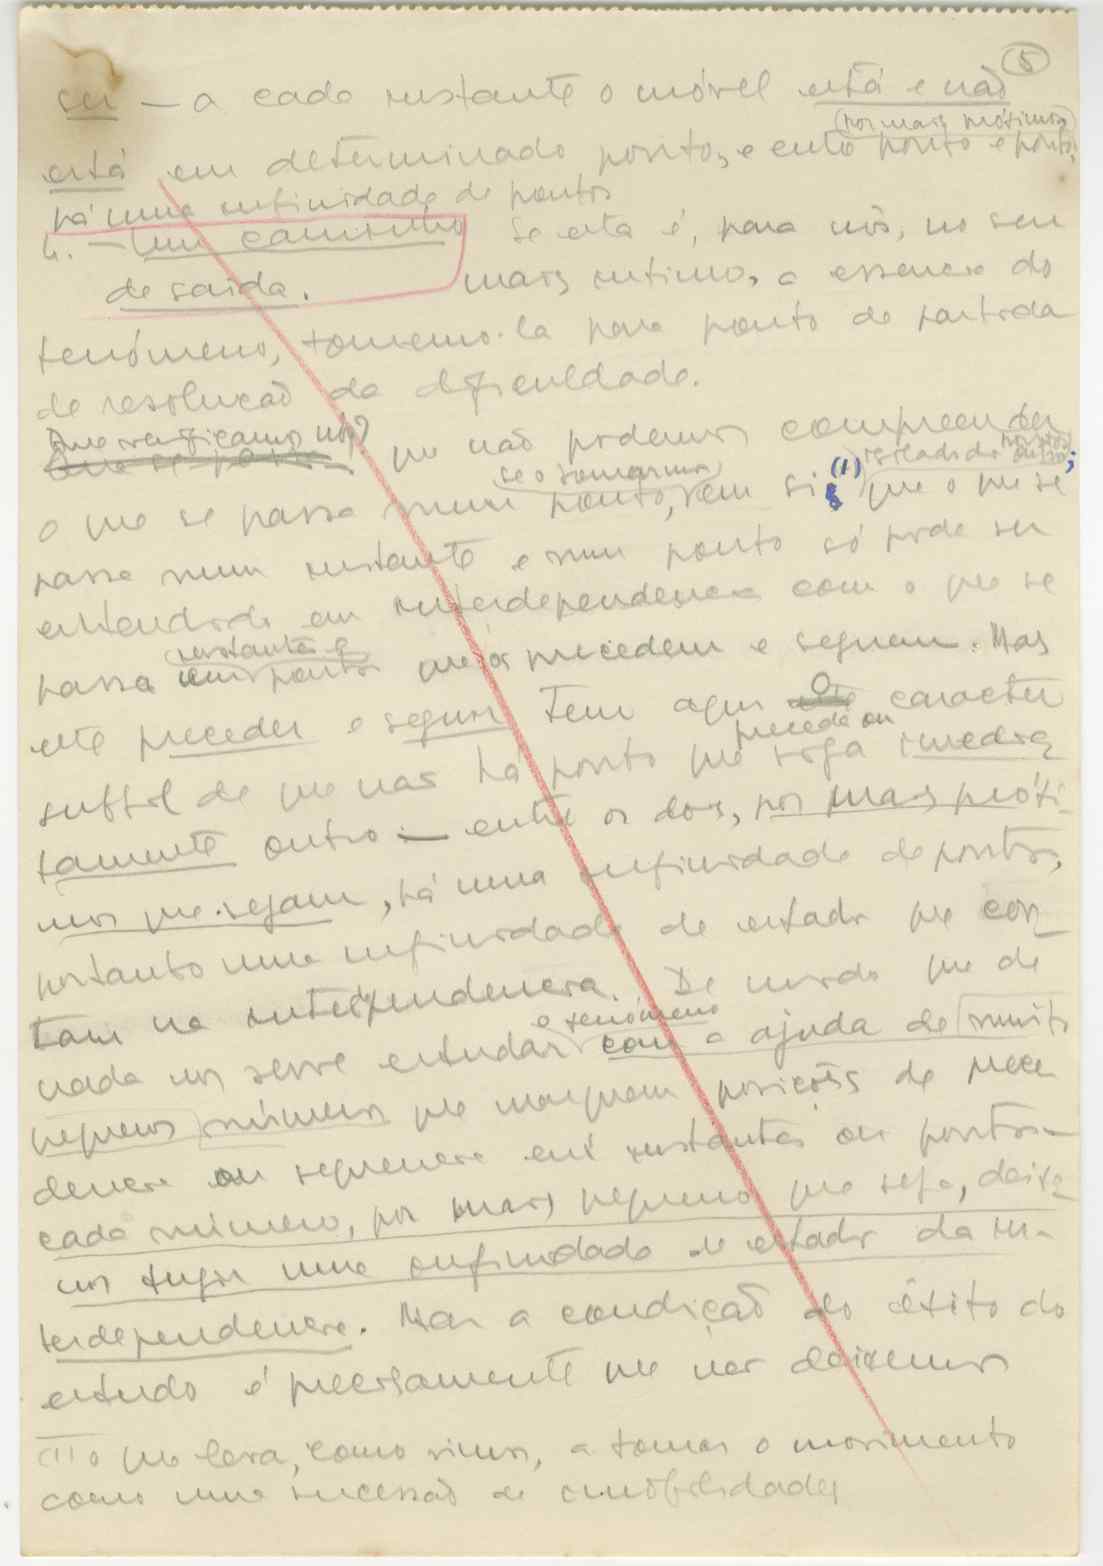 5
ser — a cada instante o móvel está e não
(por mais próximos)
está em determinado ponto, e entre ponto e ponto,
há uma infinidade de pontos
4. — Um caminho
de saída.
Se esta é, para nós, no seu
mais íntimo, a essência do
fenómeno, tomemo-la para ponto de partida
de resolução da dificuldade.
Que verificamos nós?
que não podemos compreender
se o tomarmos
isolado dos outros;
o que se passa num ponto, em si (1) que o que se
passa num instante e num ponto só pode ser
entendido em interdependência com o que se
instantes e
passa em pontos que os precedem e seguem. Mas
este preceder e seguir tem aqui o caracter
precede ou
subtil de que não há ponto que siga imedia-
tamente outro — entre os dois, por mais próxi-
mos que sejam, há uma infinidade de pontos,
portanto uma infinidade de estados que con-
tam na interdependência. De modo que de
o fenómeno
nada nos serve estudar com a ajuda de muito
pequenos números que marquem posições de prece-
dencia ou sequencia em instantes ou pontos —
cada número, por mais pequeno que seja, deixa-
nos fugir uma infinidade de estados da in-
terdependencia. Mas a condição do êxito do
estudo é precisamente que não deixemos
(1) o que leva, como vimos, a tomar o movimento
como uma sucessão de imobilidades